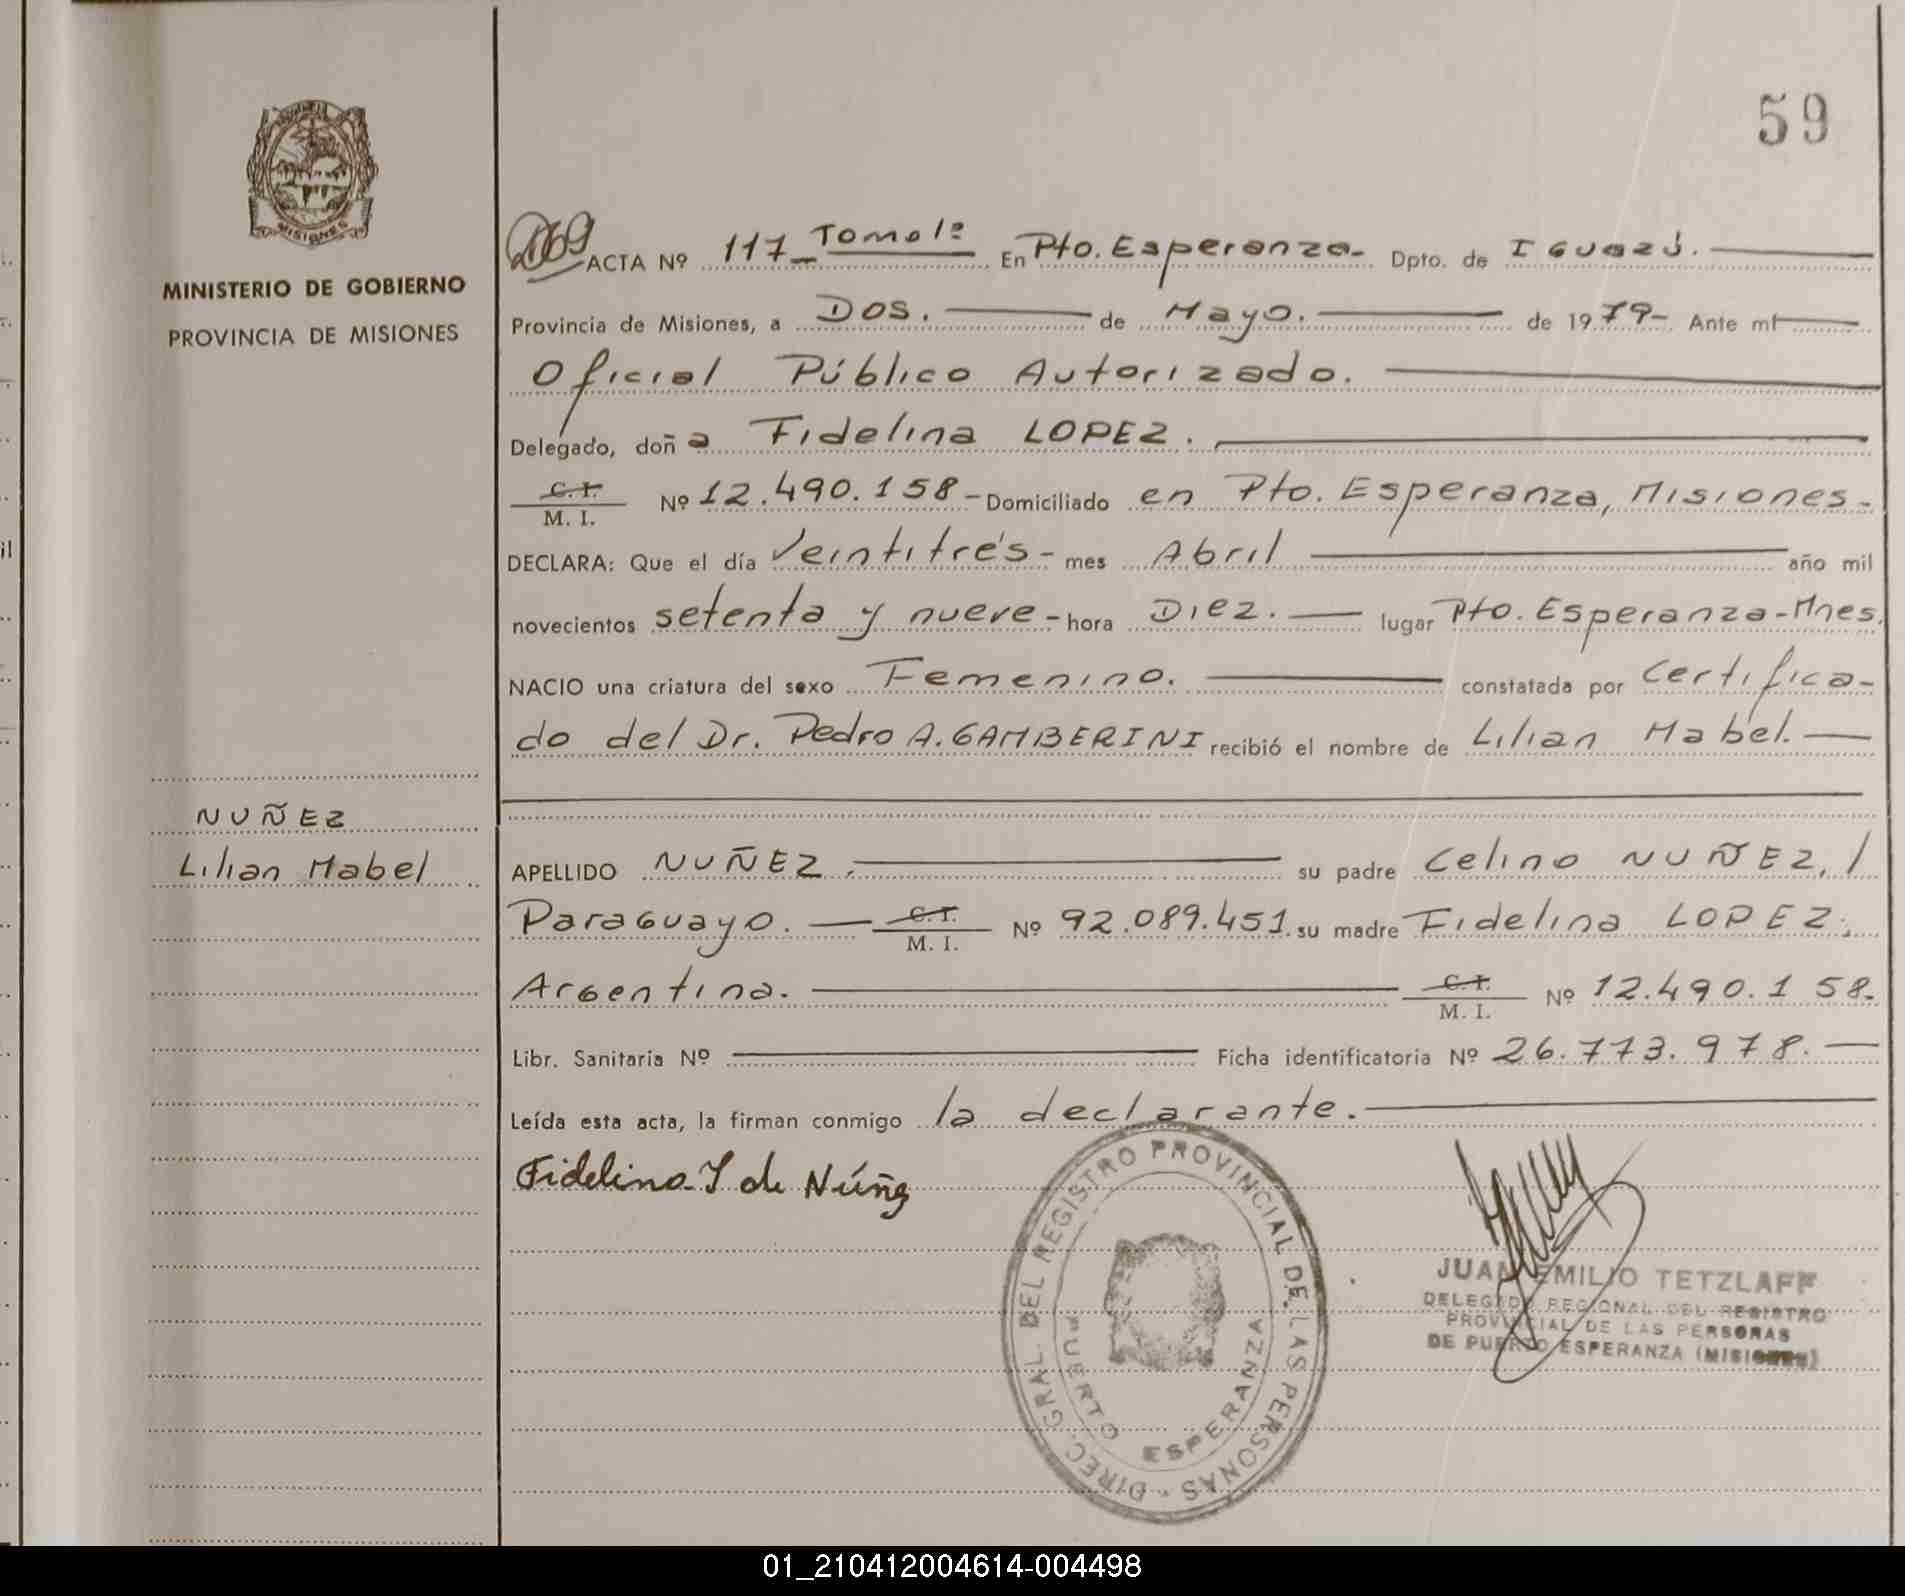 59
MISIONES
MINISTERIO DE GOBIERNO
PROVINCIA DE MISIONES
NUÑEZ
Lilian Mabel
ACTA Nº 117_ Tomo 1º En Pto. Esperanza- Dpto. de Iguazú.
Provincia de Misiones, a Dos. de Mayo. de 1979- Ante mí
Oficial Público Autorizado.
Delegado, doña Fidelina LOPEZ.
C.I. / M. I. Nº 12.490.158- Domiciliado en Pto. Esperanza, Misiones-
DECLARA: Que el día Veintitrés- mes Abril año mil
novecientos setenta y nueve- hora Diez. lugar Pto. Esperanza-Mnes.
NACIO una criatura del sexo Femenino. constatada por Certifica-
do del Dr. Pedro A. GAMBERINI recibió el nombre de Lilian Mabel.
APELLIDO NUÑEZ. su padre Celino NUÑEZ, /
Paraguayo. C.I. / M. I. Nº 92.089.451. su madre Fidelina LOPEZ,
Argentina. C.I. / M. I. Nº 12.490.158.
Libr. Sanitaria Nº Ficha identificatoria Nº 26.773.978.
Leída esta acta, la firman conmigo la declarante.
Fidelina de Núñez
DIREC. GRAL. DEL REGISTRO PROVINCIAL DE LAS PERSONAS
PUERTO ESPERANZA
JUAN EMILIO TETZLAFF
DELEGADO REGIONAL DEL REGISTRO
PROVINCIAL DE LAS PERSONAS
DE PUERTO ESPERANZA (MISIONES)
01_210412004614-004498